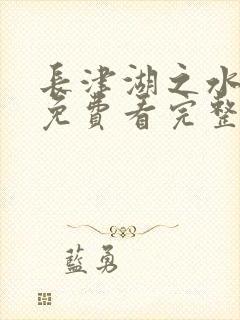 長津湖之水
免費看完整
藍勇